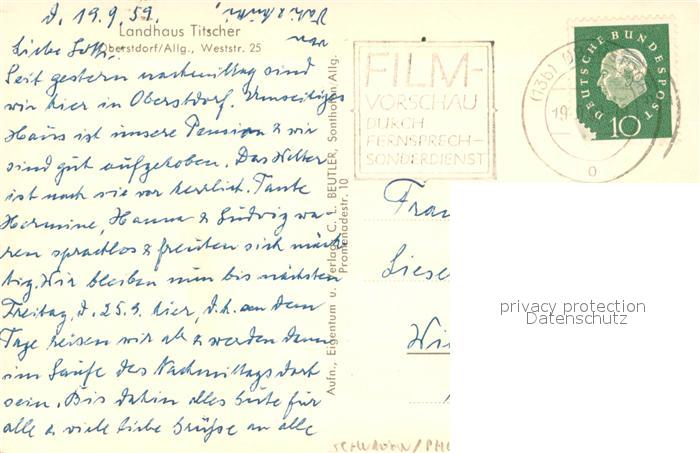 d. 19.9.59.
Landhaus Titscher
Oberstdorf/Allg., Weststr. 25
Liebe
Seit gestern nachmittag sind
wir hier in Oberstdorf. Umseitiges
Haus ist unsere Pension & wir
sind gut aufgehoben. Das Wetter
ist nach wie vor herrlich. Tante
Hermine, Hanna & Ludwig wa-
ren sprachlos & freuten sich mäch-
tig. Wir bleiben nun bis nächsten
Freitag, d. 25.9. hier, d.h. an dem
Tage reisen wir ab & werden dann
im Laufe des Nachmittags dort
sein. Bis dahin alles Gute für
alle & viele liebe Grüße an alle
von
Aufn., Eigentum u. Verlag C. L. BEUTLER, Sonthofen Allg.
Promenadestr. 10
FILM-
VORSCHAU
DURCH
FERNSPRECH-
SONDERDIENST
(13b)
19
DEUTSCHE BUNDESPOST
10
Frau
Liese
Wi
privacy protection
Datenschutz